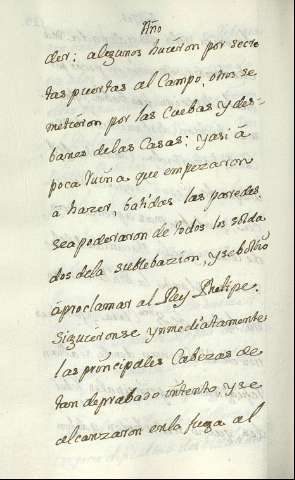 Año
der: algunos huieron por secre
tas puertas al Campo, otros se
metieron por las Cuebas y des-
banes de las Casas; y asi á
poca ruina que empezaron
á hazer, batidas las paredes,
se apoderaron de todos los solda
dos de la sublebazion, y se bolbió
á proclamar al Rey Phelipe.
Siguieronse ynmediatamente
las principales Cabezas de
tan deprabado intento, y se
alcanzaron en la fuga al